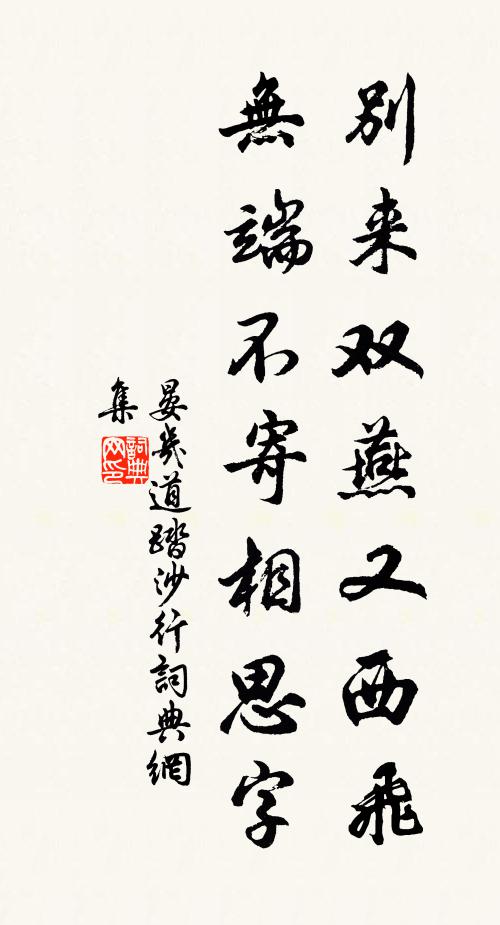 別来双燕又西飛
無端不寄相思字
晏幾道踏沙行詞典網
集
詞典
网印